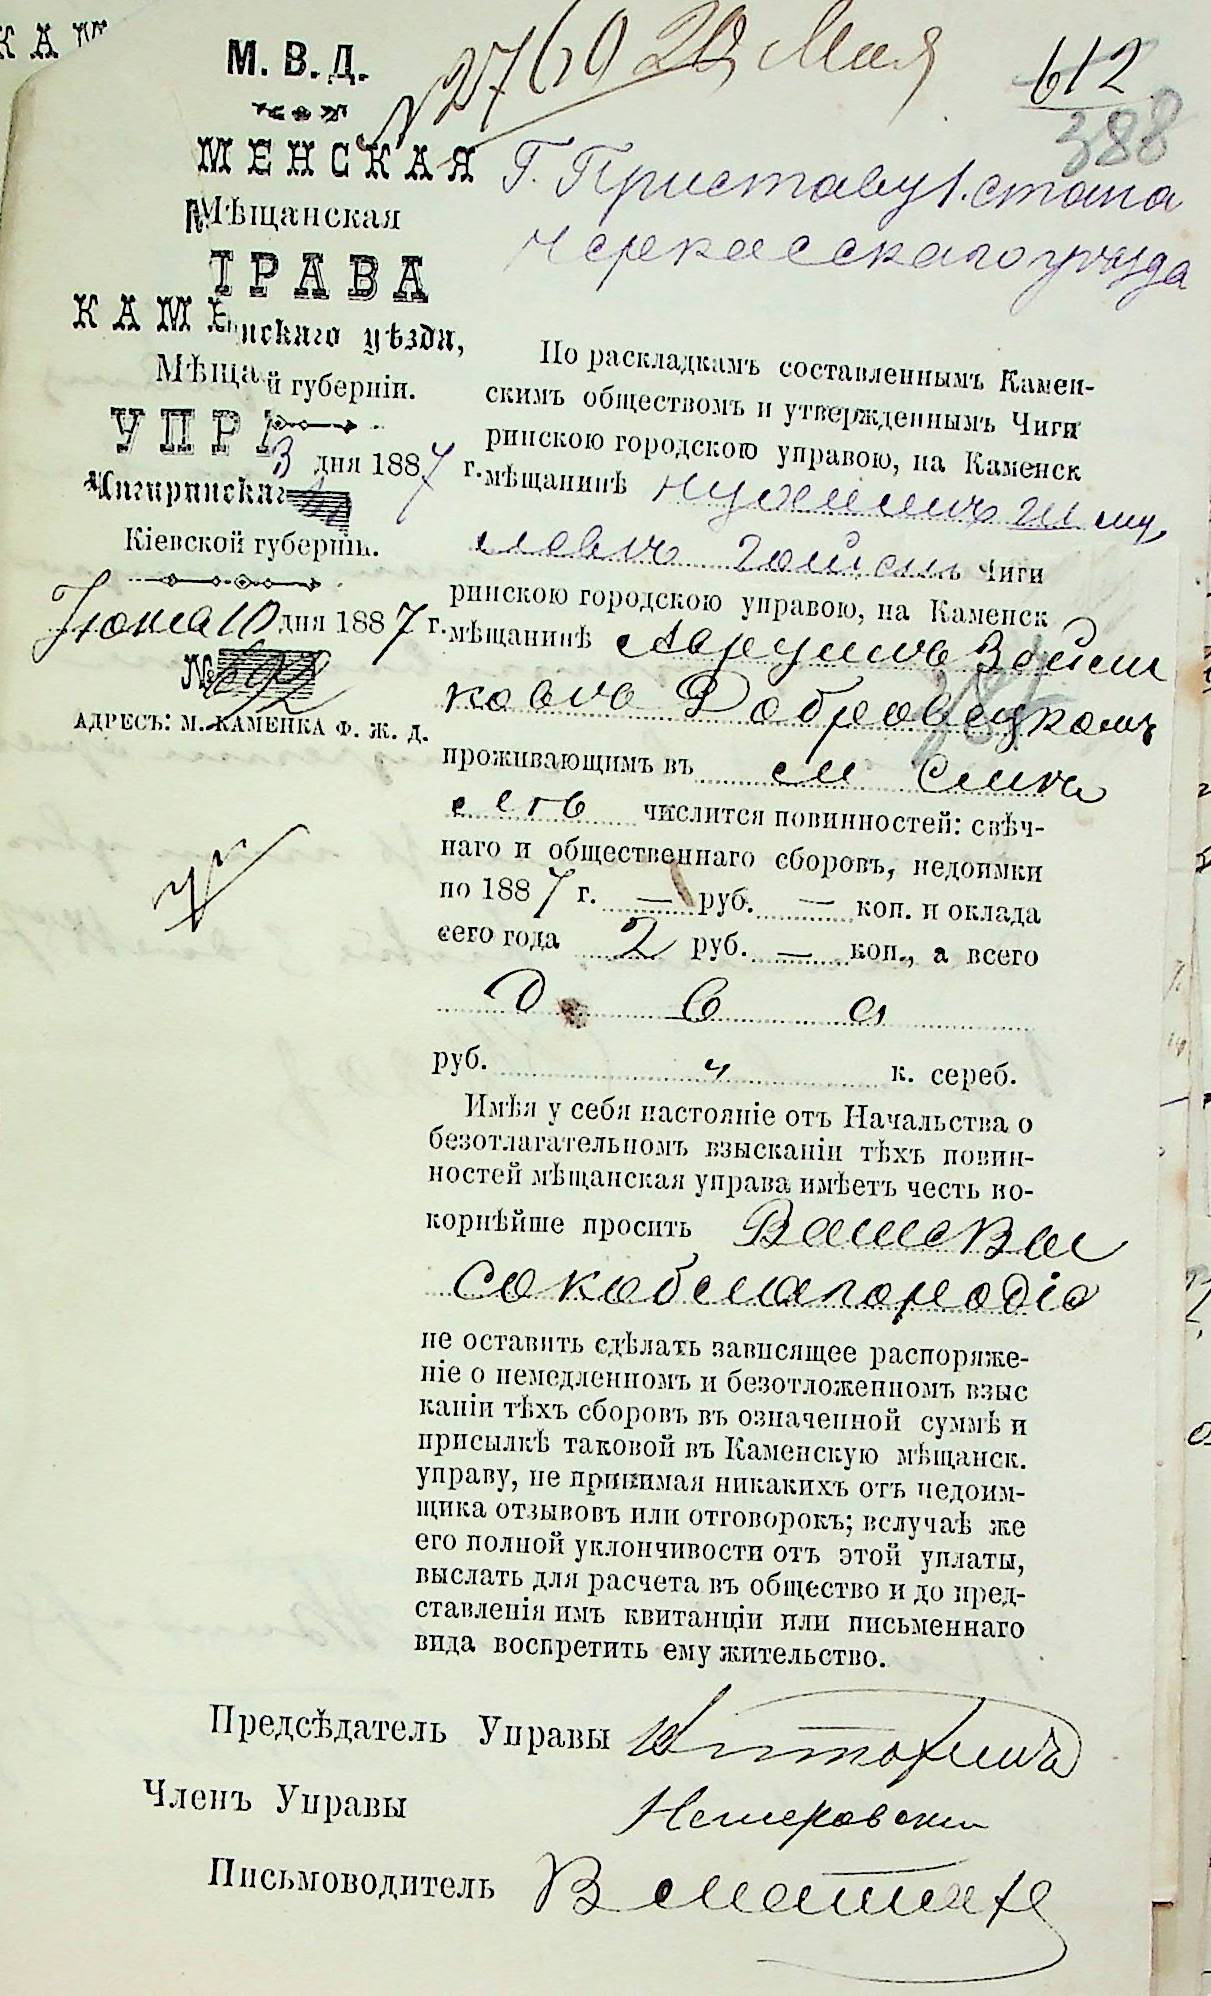 КАМ
М. В. Д.
№ 2769 20 Мая
612
388
МЕНСКАЯ
Мѣщанская
ПРАВА
нскаго уѣзда,
й губерніи.
3 дня 1887 г.
Г. Приставу 1. стана
Черкасскаго уѣзда
КАМЕ
Мѣща
УПРА
Чигиринскаг
Кіевской губерніи.
Іюня 10 дня 1887 г.
№ 692
АДРЕСЪ: М. КАМЕНКА Ф. Ж. Д.
По раскладкамъ составленнымъ Камен-
скимъ обществомъ и утвержденнымъ Чиги
ринскою городскою управою, на Каменск
мѣщанинѣ Нухимъ Шму
ль Чиги
ринскою городскою управою, на Каменск
мѣщанинѣ Аврумъ Зейли
ковъ Добровецкомъ
проживающимъ въ м Смѣ
числится повинностей: свѣч-
наго и общественнаго сборовъ, недоимки
по 1887 г. — руб. — коп. и оклада
сего года 2 руб. — коп., а всего
Два
руб. к. сереб.
Имѣя у себя настояніе отъ Начальства о
безотлагательномъ взысканіи тѣхъ повин-
ностей мѣщанская управа имѣетъ честь по-
корнѣйше просить Ваше Вы
сокоблагородіе
не оставить сдѣлать зависящее распоряже-
ніе о немедленномъ и безотложенномъ взыс
каніи тѣхъ сборовъ въ означенной суммѣ и
присылкѣ таковой въ Каменскую мѣщанск.
управу, не принимая никакихъ отъ недоим-
щика отзывовъ или отговорокъ; вслучаѣ же
его полной уклончивости отъ этой уплаты,
выслать для расчета въ общество и до пред-
ставленія имъ квитанціи или письменнаго
вида воспретить ему жительство.
Предсѣдатель Управы
Членъ Управы Немеровски
Письмоводитель